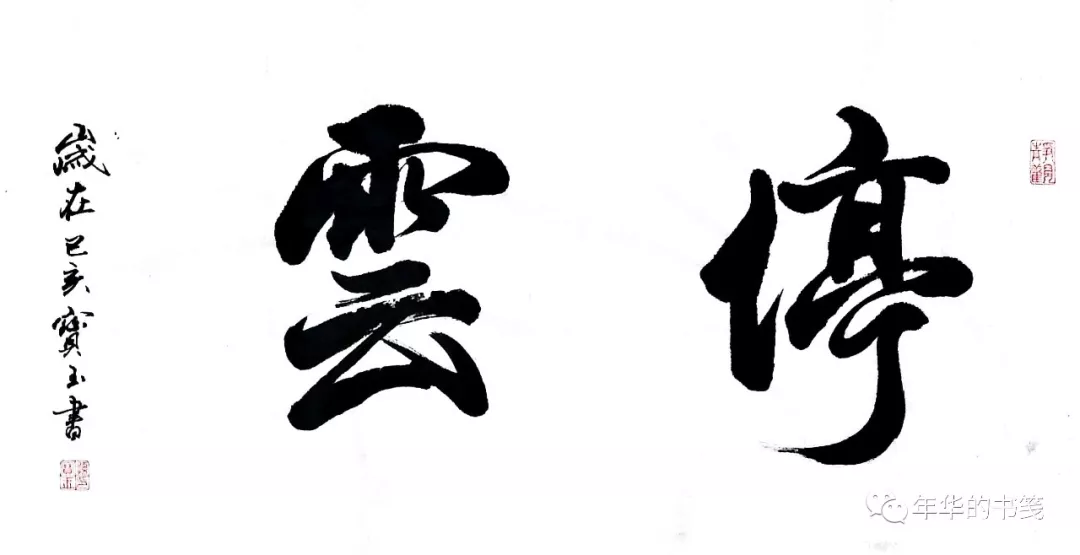 停雲
歲在己亥寶玉書
年华的书笺